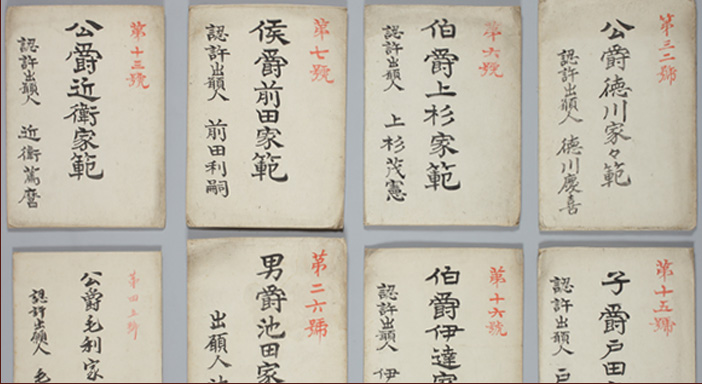 第三二號
公爵徳川家々範
認許出願人 徳川慶喜
第六號
伯爵上杉家範
認許出願人 上杉茂憲
第七號
侯爵前田家範
認許出願人 前田利嗣
第十三號
公爵近衛家範
認許出願人 近衛篤麿
第十五號
子爵戸田
認許出願人 戸
第十六號
伯爵伊達家
認許出願人 伊
第二六號
男爵池田家
出願人
公爵毛利家
認許出願人 毛